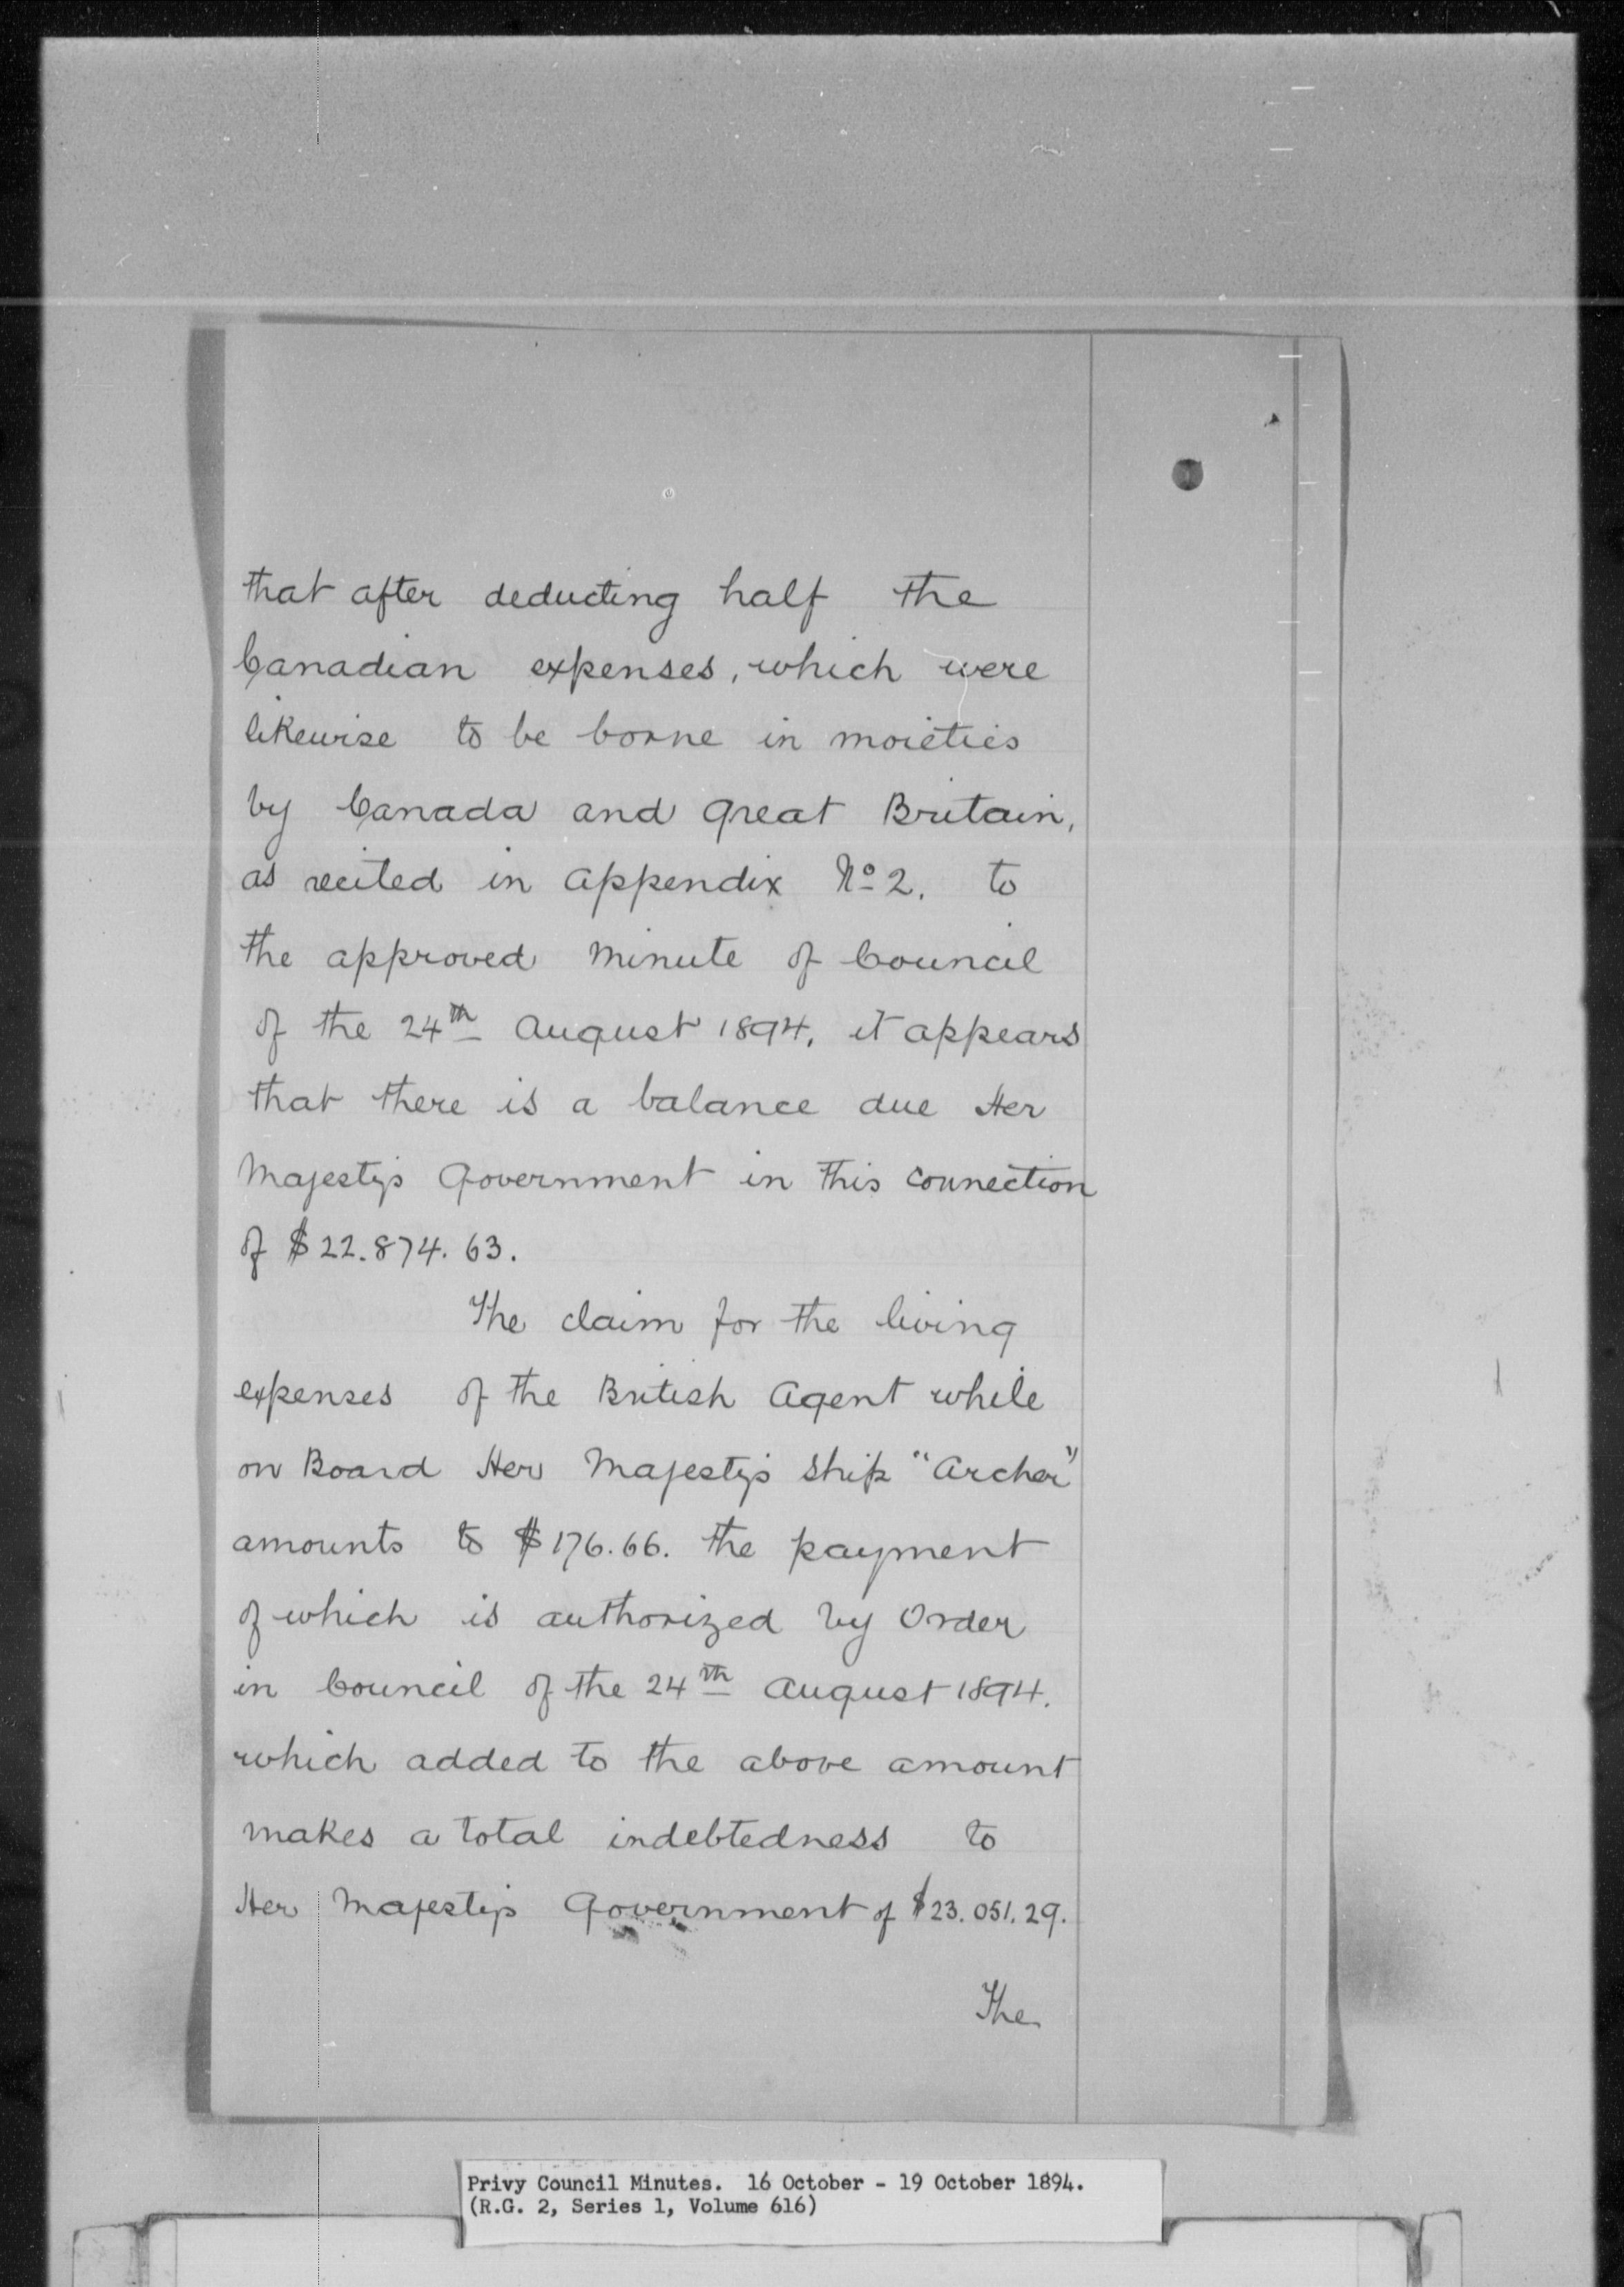 that after deducting half the
Canadian expenses, which were
likewise to be borne in moieties
by Canada and Great Britain,
as recited in Appendix No 2. to
the approved Minute of Council
of the 24th August 1894, it appears
that there is a balance due Her
Majesty's Government in this connection
of $22.874.63.
The claim for the living
expenses of the British Agent while
on Board Her Majesty's Ship "Archer"
amounts to $176.66. the payment
of which is authorized by Order
in Council of the 24th August 1894.
which added to the above amount
makes a total indebtedness to
Her Majesty's Government of $23.051.29.
The
Privy Council Minutes. 16 October - 19 October 1894.
(R.G. 2, Series 1, Volume 616)